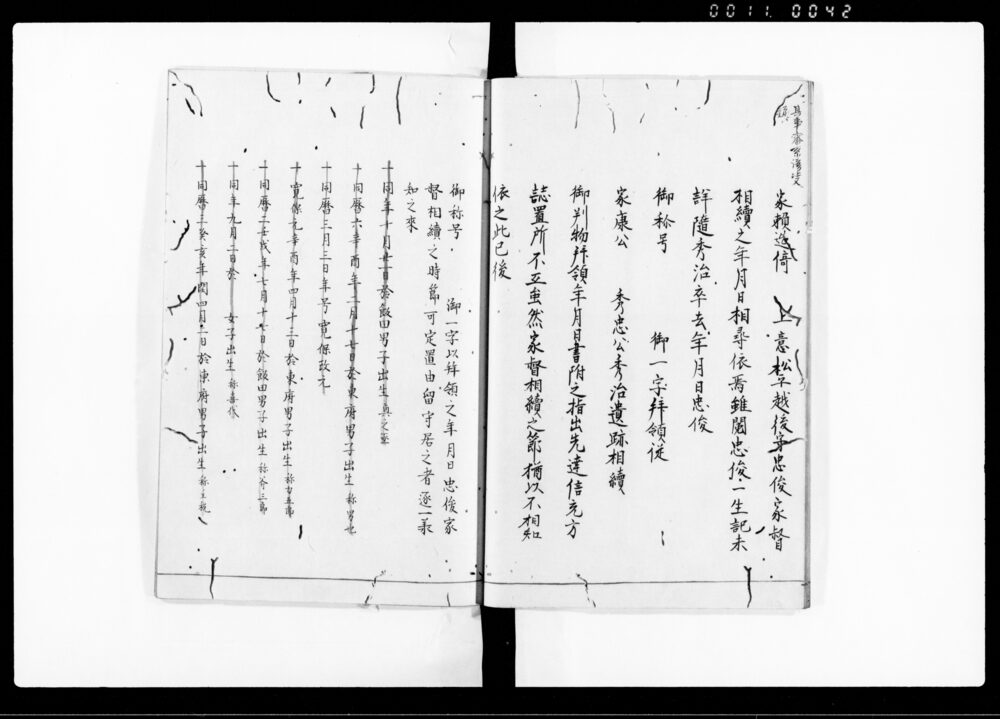 0011 0042
家頼逸倚 上意松平越後守忠俊家督
相續之年月日相尋依焉雖閲忠俊一生記未
詳隨秀治卒去年月日忠俊
御称号 御一字拜領従
家康公 秀忠公秀治遺跡相續
御判物拜領年月日書附之指出先達信充方
誌置所不正虽然家督相續之節猶以不相知
依之此已後
御称号 御一字以拜領之年月日忠俊家
督相續之時節可定置由留守居之者逐一承
知之来
一同年十月廿一日於飯田男子出生
一同暦六辛酉年二月十七日於東府男子出生
一同暦三月三日年号寛保改元
一寛保元辛酉年四月十三日於東府男子出生
一同暦二壬戌年七月十七日於飯田男子出生 称斧三郎
一同年九月二日於 女子出生 称喜代
一同暦三癸亥年閏四月二日於東府男子出生 称主税